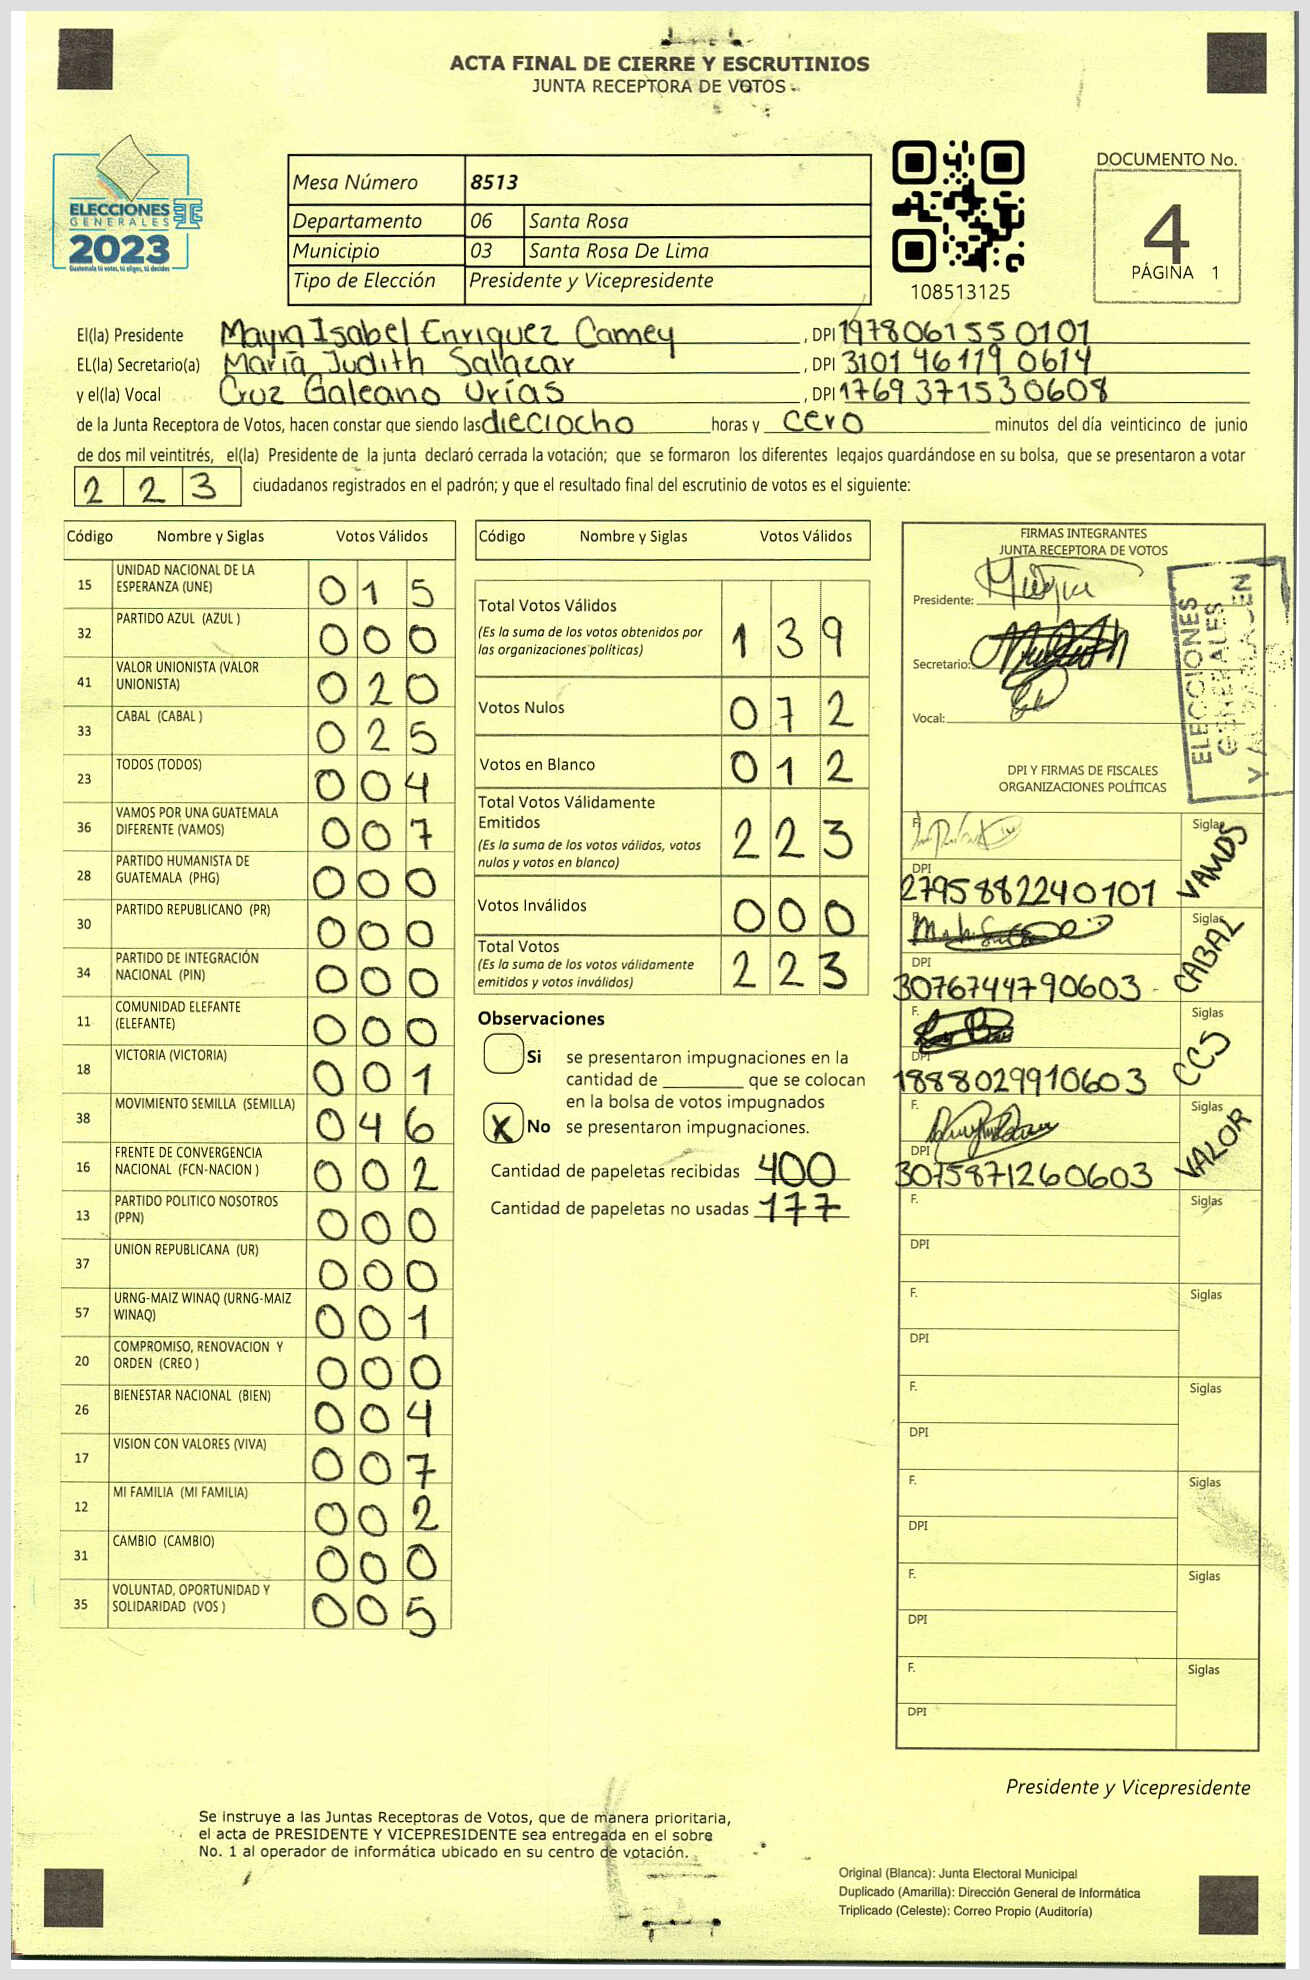 ACTA FINAL DE CIERRE Y ESCRUTINIOS
JUNTA RECEPTORA DE VOTOS
ELECCIONES
GENERALES
2023
Guatemala tú votas, tú eliges, tú decides
Mesa Número 8513
Departamento 06 Santa Rosa
Municipio 03 Santa Rosa De Lima
Tipo de Elección Presidente y Vicepresidente
108513125
DOCUMENTO No.
4
PÁGINA 1
El(la) Presidente Mayra Isabel Enriquez Camey, DPI 1978061550101
EL(la) Secretario(a) María Judith Salazar, DPI 3101461190614
y el(la) Vocal Cruz Galeano Urías, DPI 1769371530608
de la Junta Receptora de Votos, hacen constar que siendo las dieciocho horas y cero minutos del día veinticinco de junio
de dos mil veintitrés, el(la) Presidente de la junta declaró cerrada la votación; que se formaron los diferentes legajos guardándose en su bolsa, que se presentaron a votar
223 ciudadanos registrados en el padrón; y que el resultado final del escrutinio de votos es el siguiente:
Código Nombre y Siglas Votos Válidos
15 UNIDAD NACIONAL DE LA ESPERANZA (UNE) 015
32 PARTIDO AZUL (AZUL ) 000
41 VALOR UNIONISTA (VALOR UNIONISTA) 020
33 CABAL (CABAL ) 025
23 TODOS (TODOS) 004
36 VAMOS POR UNA GUATEMALA DIFERENTE (VAMOS) 007
28 PARTIDO HUMANISTA DE GUATEMALA (PHG) 000
30 PARTIDO REPUBLICANO (PR) 000
34 PARTIDO DE INTEGRACIÓN NACIONAL (PIN) 000
11 COMUNIDAD ELEFANTE (ELEFANTE) 000
18 VICTORIA (VICTORIA) 001
38 MOVIMIENTO SEMILLA (SEMILLA) 046
16 FRENTE DE CONVERGENCIA NACIONAL (FCN-NACION ) 002
13 PARTIDO POLITICO NOSOTROS (PPN) 000
37 UNION REPUBLICANA (UR) 000
57 URNG-MAIZ WINAQ (URNG-MAIZ WINAQ) 001
20 COMPROMISO, RENOVACION Y ORDEN (CREO ) 000
26 BIENESTAR NACIONAL (BIEN) 004
17 VISION CON VALORES (VIVA) 007
12 MI FAMILIA (MI FAMILIA) 002
31 CAMBIO (CAMBIO) 000
35 VOLUNTAD, OPORTUNIDAD Y SOLIDARIDAD (VOS ) 005
Código Nombre y Siglas Votos Válidos
Total Votos Válidos 139
(Es la suma de los votos obtenidos por
las organizaciones políticas)
Votos Nulos 072
Votos en Blanco 012
Total Votos Válidamente
Emitidos 223
(Es la suma de los votos válidos, votos
nulos y votos en blanco)
Votos Inválidos 000
Total Votos 223
(Es la suma de los votos válidamente
emitidos y votos inválidos)
Observaciones
Si se presentaron impugnaciones en la
cantidad de ________ que se colocan
en la bolsa de votos impugnados
X No se presentaron impugnaciones.
Cantidad de papeletas recibidas 400
Cantidad de papeletas no usadas 177
FIRMAS INTEGRANTES
JUNTA RECEPTORA DE VOTOS
Presidente:
Secretario:
Vocal:
ELECCIONES
GENERALES
DPI Y FIRMAS DE FISCALES
ORGANIZACIONES POLÍTICAS
F. Siglas VAMOS
DPI 2795882240101
F. Siglas CABAL
DPI 3076744790603
F. Siglas CCS
DPI 1888029910603
F. Siglas VALOR
DPI 3075871260603
F. Siglas
DPI
F. Siglas
DPI
F. Siglas
DPI
F. Siglas
DPI
F. Siglas
DPI
F. Siglas
DPI
Presidente y Vicepresidente
Se instruye a las Juntas Receptoras de Votos, que de manera prioritaria,
el acta de PRESIDENTE Y VICEPRESIDENTE sea entregada en el sobre
No. 1 al operador de informática ubicado en su centro de votación.
Original (Blanca): Junta Electoral Municipal
Duplicado (Amarilla): Dirección General de Informática
Triplicado (Celeste): Correo Propio (Auditoría)